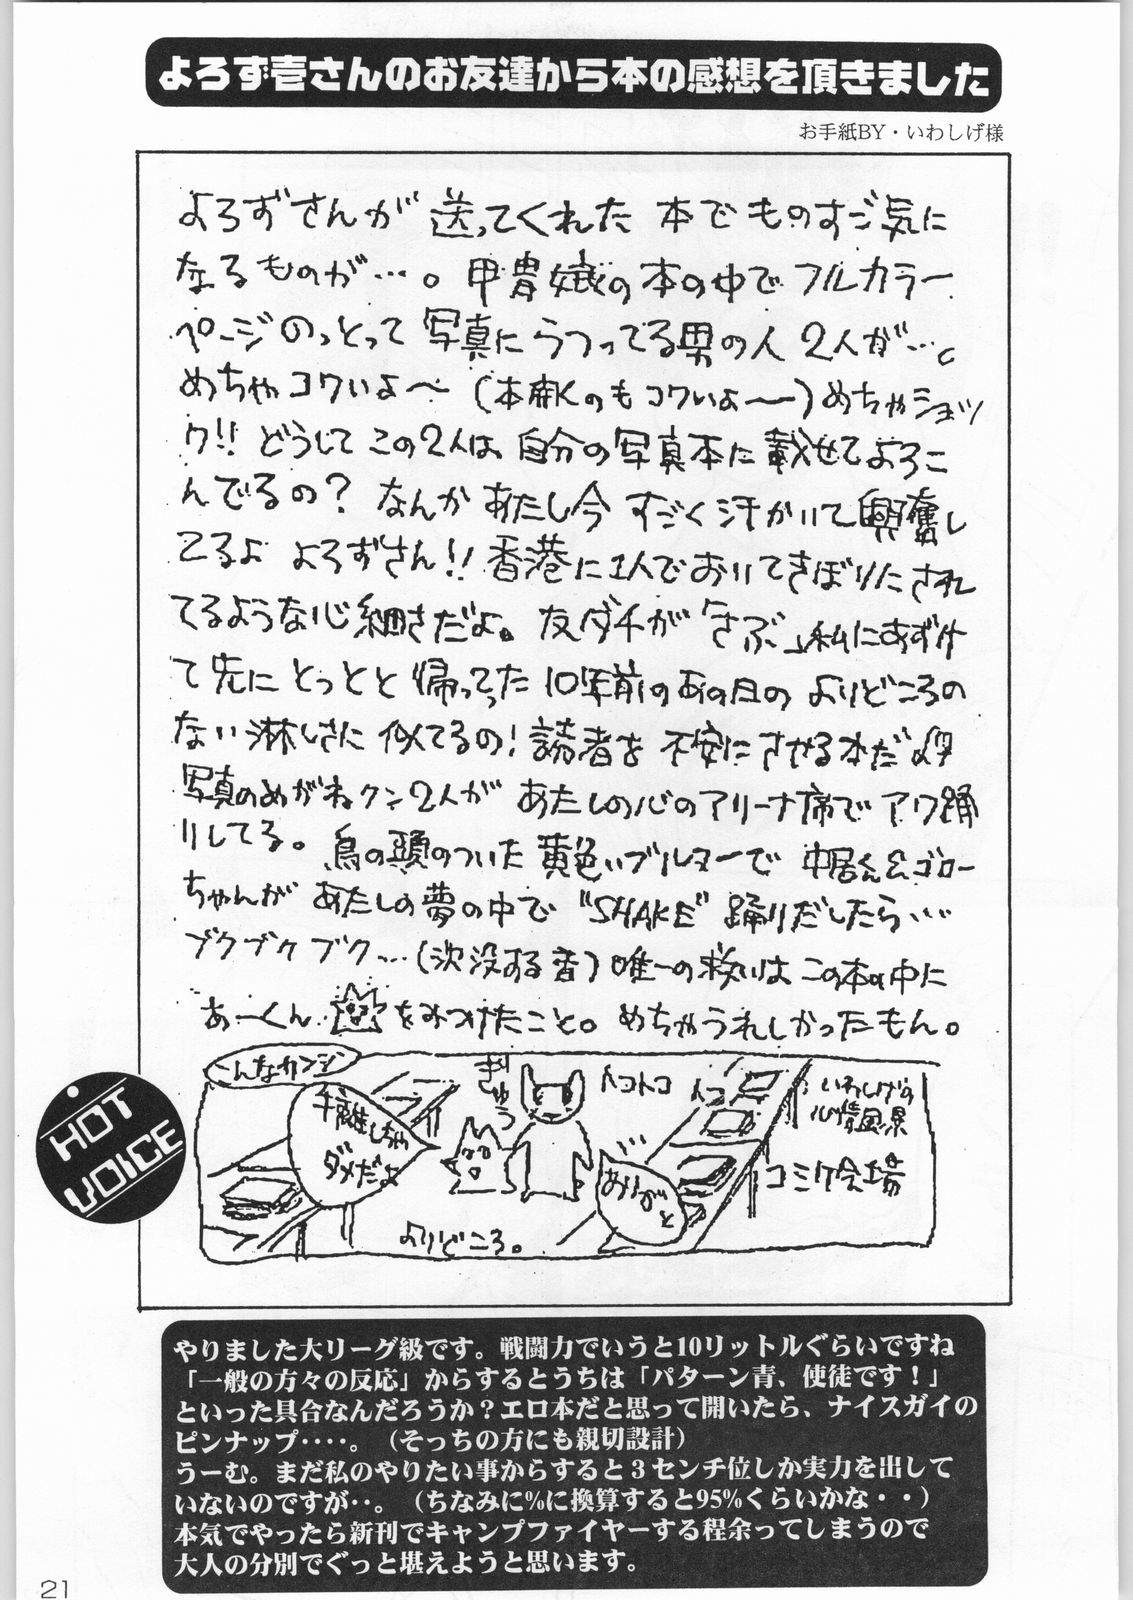 よろず壱さんのお友達から本の感想を頂きました
お手紙BY・いわしげ様
よろずさんが送ってくれた 本でものすご気に
なるものが…。甲冑娥の本の中でフルカラー
ページのっとって写真にうつってる男の人2人が…。
めちゃコワいよ〜(本開くのもコワいよ〜)めちゃショッ
ク!! どうしてこの2人は自分の写真本に載せてよろこ
んでるの? なんかあたし今すごく汗かいて興奮し
てるよ よろずさん!! 香港に1人でおいてきぼりにされ
てるような心細さだよ。友ダチが「さぶ」私にあずけ
て先にとっとと帰ってった10年前のあの日のよりどころの
ない淋しさに似てるの!読者を不安にさせる本だよ
写真のめがねクン2人があたしの心のアリーナ席でアワ踊
りしてる。鳥の頭のついた黄色いブルマーで中居くん&ゴロー
ちゃんがあたしの夢の中で"SHAKE"踊りだしたら…
ブクブクブク…(沈没する音)唯一の救いはこの本の中に
あーくん をみつけたこと。めちゃうれしかったもん。
こんなカンジ
手離しちゃ
ダメだよ
ぎゅう
トコトコ
トコ
いわしげの
心情風景
コミケ会場
ありがと
よりどころ。
HOT
VOICE
やりました大リーグ級です。戦闘力でいうと10リットルぐらいですね
「一般の方々の反応」からするとうちは「パターン青、使徒です!」
といった具合なんだろうか?エロ本だと思って開いたら、ナイスガイの
ピンナップ‥‥。(そっちの方にも親切設計)
うーむ。まだ私のやりたい事からすると3センチ位しか実力を出して
いないのですが‥。(ちなみに%に換算すると95%くらいかな・・)
本気でやったら新刊でキャンプファイヤーする程余ってしまうので
大人の分別でぐっと堪えようと思います。
21